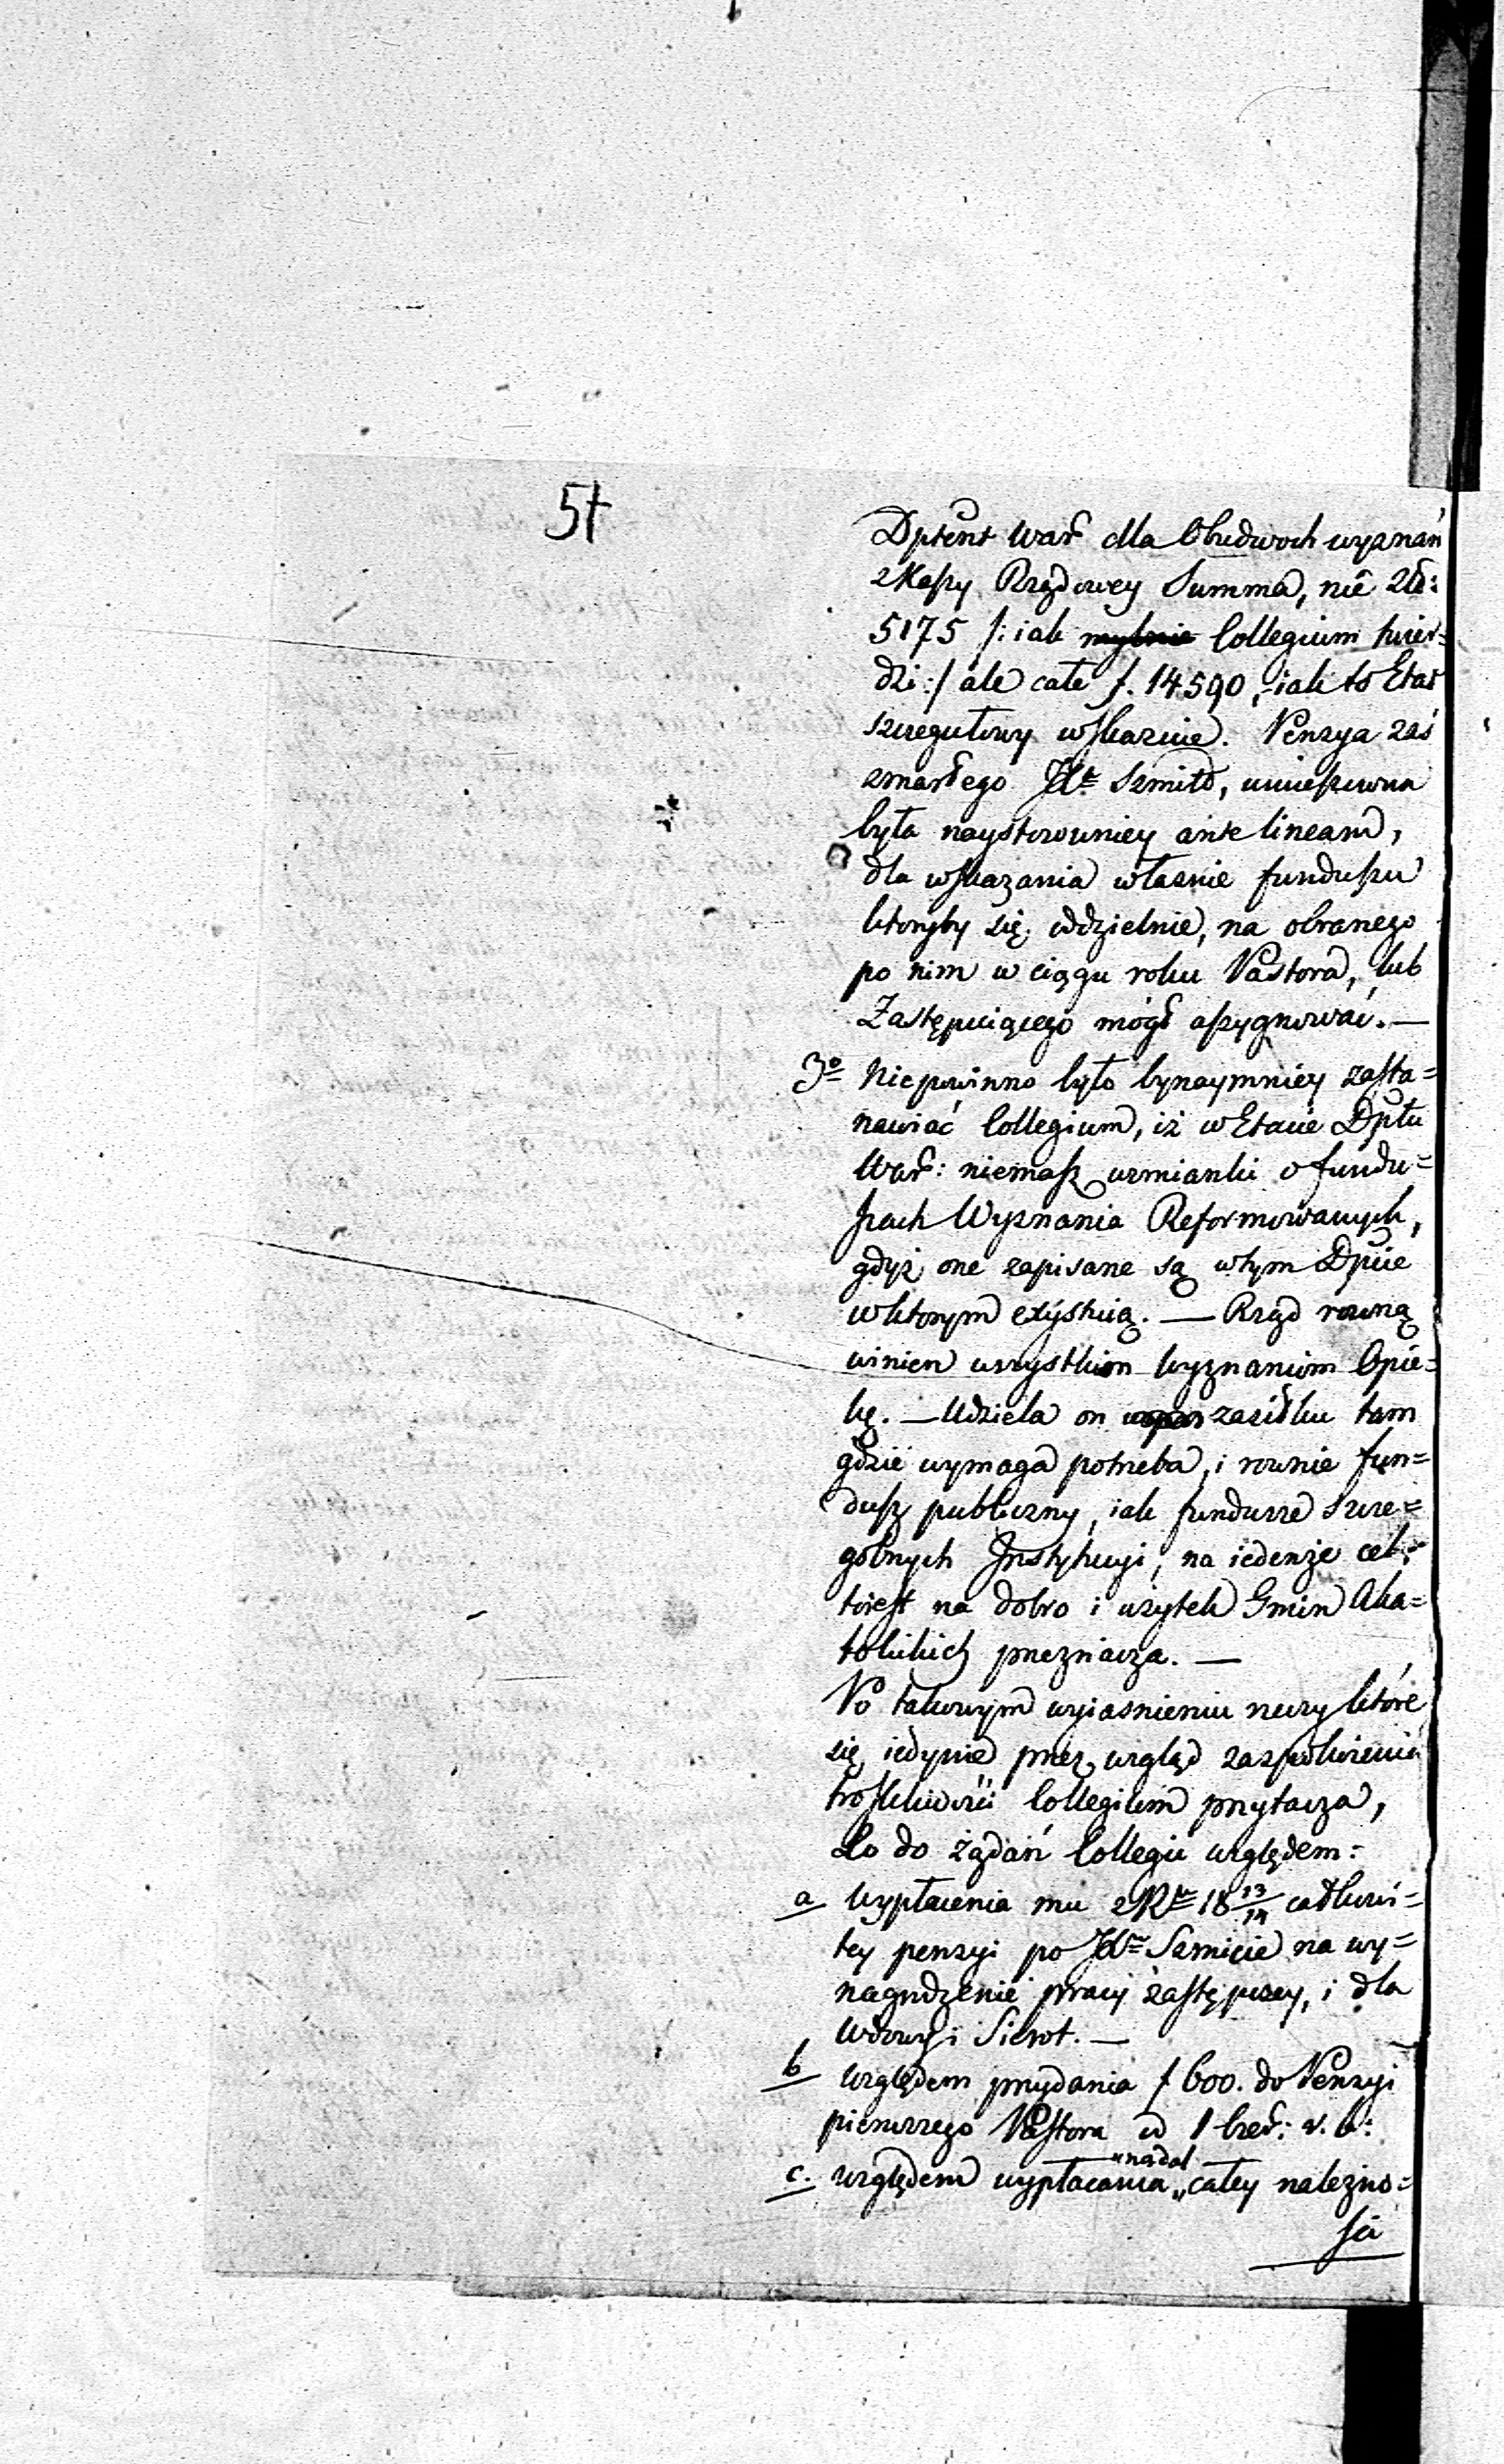 57
Dptent War dla Obudwoch wyznań
z Kassy Rządowey Summa, nie Złł:
5175 /: iak mylnie Collegium twier=
dzi :/ ale całe f. 14590, iak to Etat
szczegułowy wskazuie. Pensya zaś
zmarłego Xdza Szmidt, umieszczona
była naystosowniey ante lineam,
dla wskazania własnie funduszu
ktoryby się oddzielnie, na obranego
po nim w ciągu roku Pastora, lub
Zastępuiącego mógł assygnować. —
3o Niepowinno było bynaymniey zasta=
nawiać Collegium, iż w Etacie Dptu
War: niemasz wzmianki o fundu=
szach Wyznania Reformowanych,
gdyż one zapisane są w tym Dpcie
w ktorym exystuią. — Rząd rowną
winien wszystkim Wyznaniom Opie=
kę. — Udziela on zasiłku tam
gdzie wymaga potrzeba, i rownie fun=
dusz publiczny, iak fundusze szcze=
gólnych Instytucyi, na iedenże cel,
toiest na dobro i użytek Gmin Aka=
tolickich przeznacza. —
Po takowym wyiasnieniu rzeczy które
się iedynie przez wzgląd zaspokoienia
troskliwości Collegium przytacza,
Co do żądań Collegii względem:
a Wypłacenia mu z Rku 18 13/14 całkowi=
tey pensyi po Xdzu Szmicie na wy=
nagrodzenie pracy zastępczey, i dla
Wdowy i Sierot. —
b Względem przydania f 600. do Pensyi
pierwszego Pastora od 1 Czer: r. b:
c. względem wypłacania „nadal „całey należno=
ści